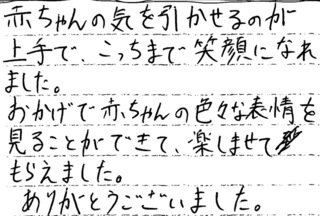 赤ちゃんの気を引かせるのが
上手で、こっちまで笑顔になれ
ました。
おかげで赤ちゃんの色々な表情を
見ることができて、楽しませて
もらえました。
ありがとうございました。